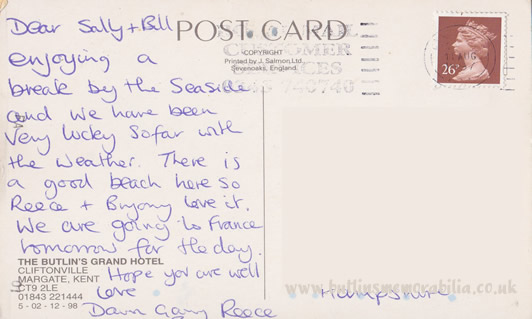 Dear Sally + Bill
enjoying a
break by the Seaside
and we have been
very lucky so far with
the weather. There is
a good beach here so
Reece + Bryony love it.
We are going to France
tomorrow for the day.
Hope you are well
love
Dawn Gary Reece
POST CARD
COPYRIGHT
Printed by J. Salmon Ltd.
Sevenoaks, England.
CUSTOMER
26P
THE BUTLIN'S GRAND HOTEL
CLIFTONVILLE
MARGATE, KENT
CT9 2LE
01843 221444
5 - 02 - 12 - 98
Hampshire
www.butlinsmemorabilia.co.uk